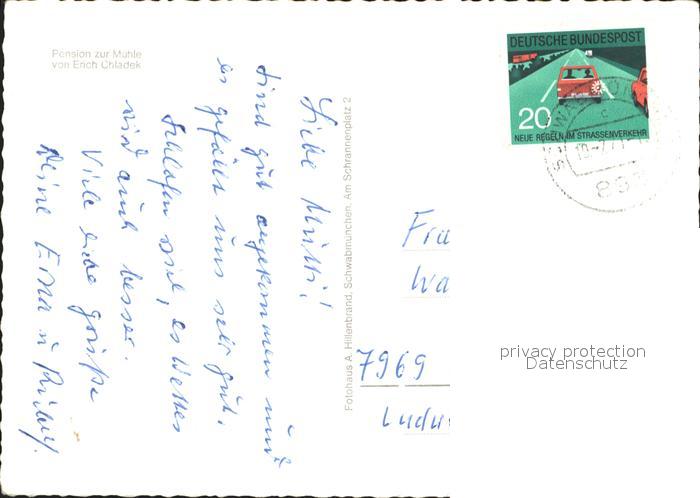 Pension zur Mühle
von Erich Chladek
Liebe Mutti!
Sind gut angekommen und
es gefällt uns sehr gut.
Schlafen viel, es Wetter
wird auch besser.
Viele liebe Grüße
Deine Erna u
Fotohaus A. Hillenbrand, Schwabmünchen, Am Schrannenplatz 2
DEUTSCHE BUNDESPOST
20
NEUE REGELN IM STRASSENVERKEHR
Fra
Wa
7969
Ludw
privacy protection
Datenschutz